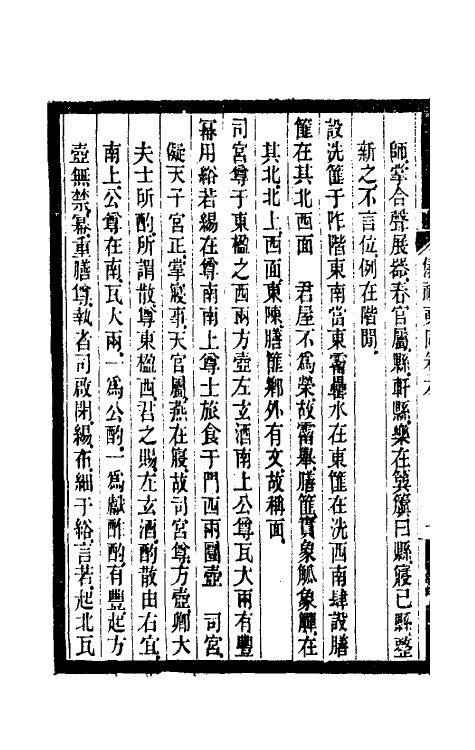 師掌合聲展器春官屬縣軒縣樂在簨簴曰縣寢已縣整
新之不言位例在階閒
設洗篚于阼階東南當東霤罍水在東篚在洗西南肆設膳
篚在其北西面　君屋不爲榮故霤舉膳篚實象觚象觶在
其北北上西面東陳膳篚鄉外有文故稱面
司宮尊于東楹之西兩方壺左玄酒南上公尊瓦大兩有豐
冪用綌若錫在尊南南上尊士旅食于門西兩圜壺　司宮
疑天子宮正掌寢事天官屬燕在寢故司宮尊方壺卿大
夫士所酌所謂散尊東楹西君之賜左玄酒酌散由右宜
南上公尊在南瓦大兩一爲公酌一爲獻酢酌有豐起方
壺無禁冪重膳尊執者司啟閉緆布細于綌言若起北瓦